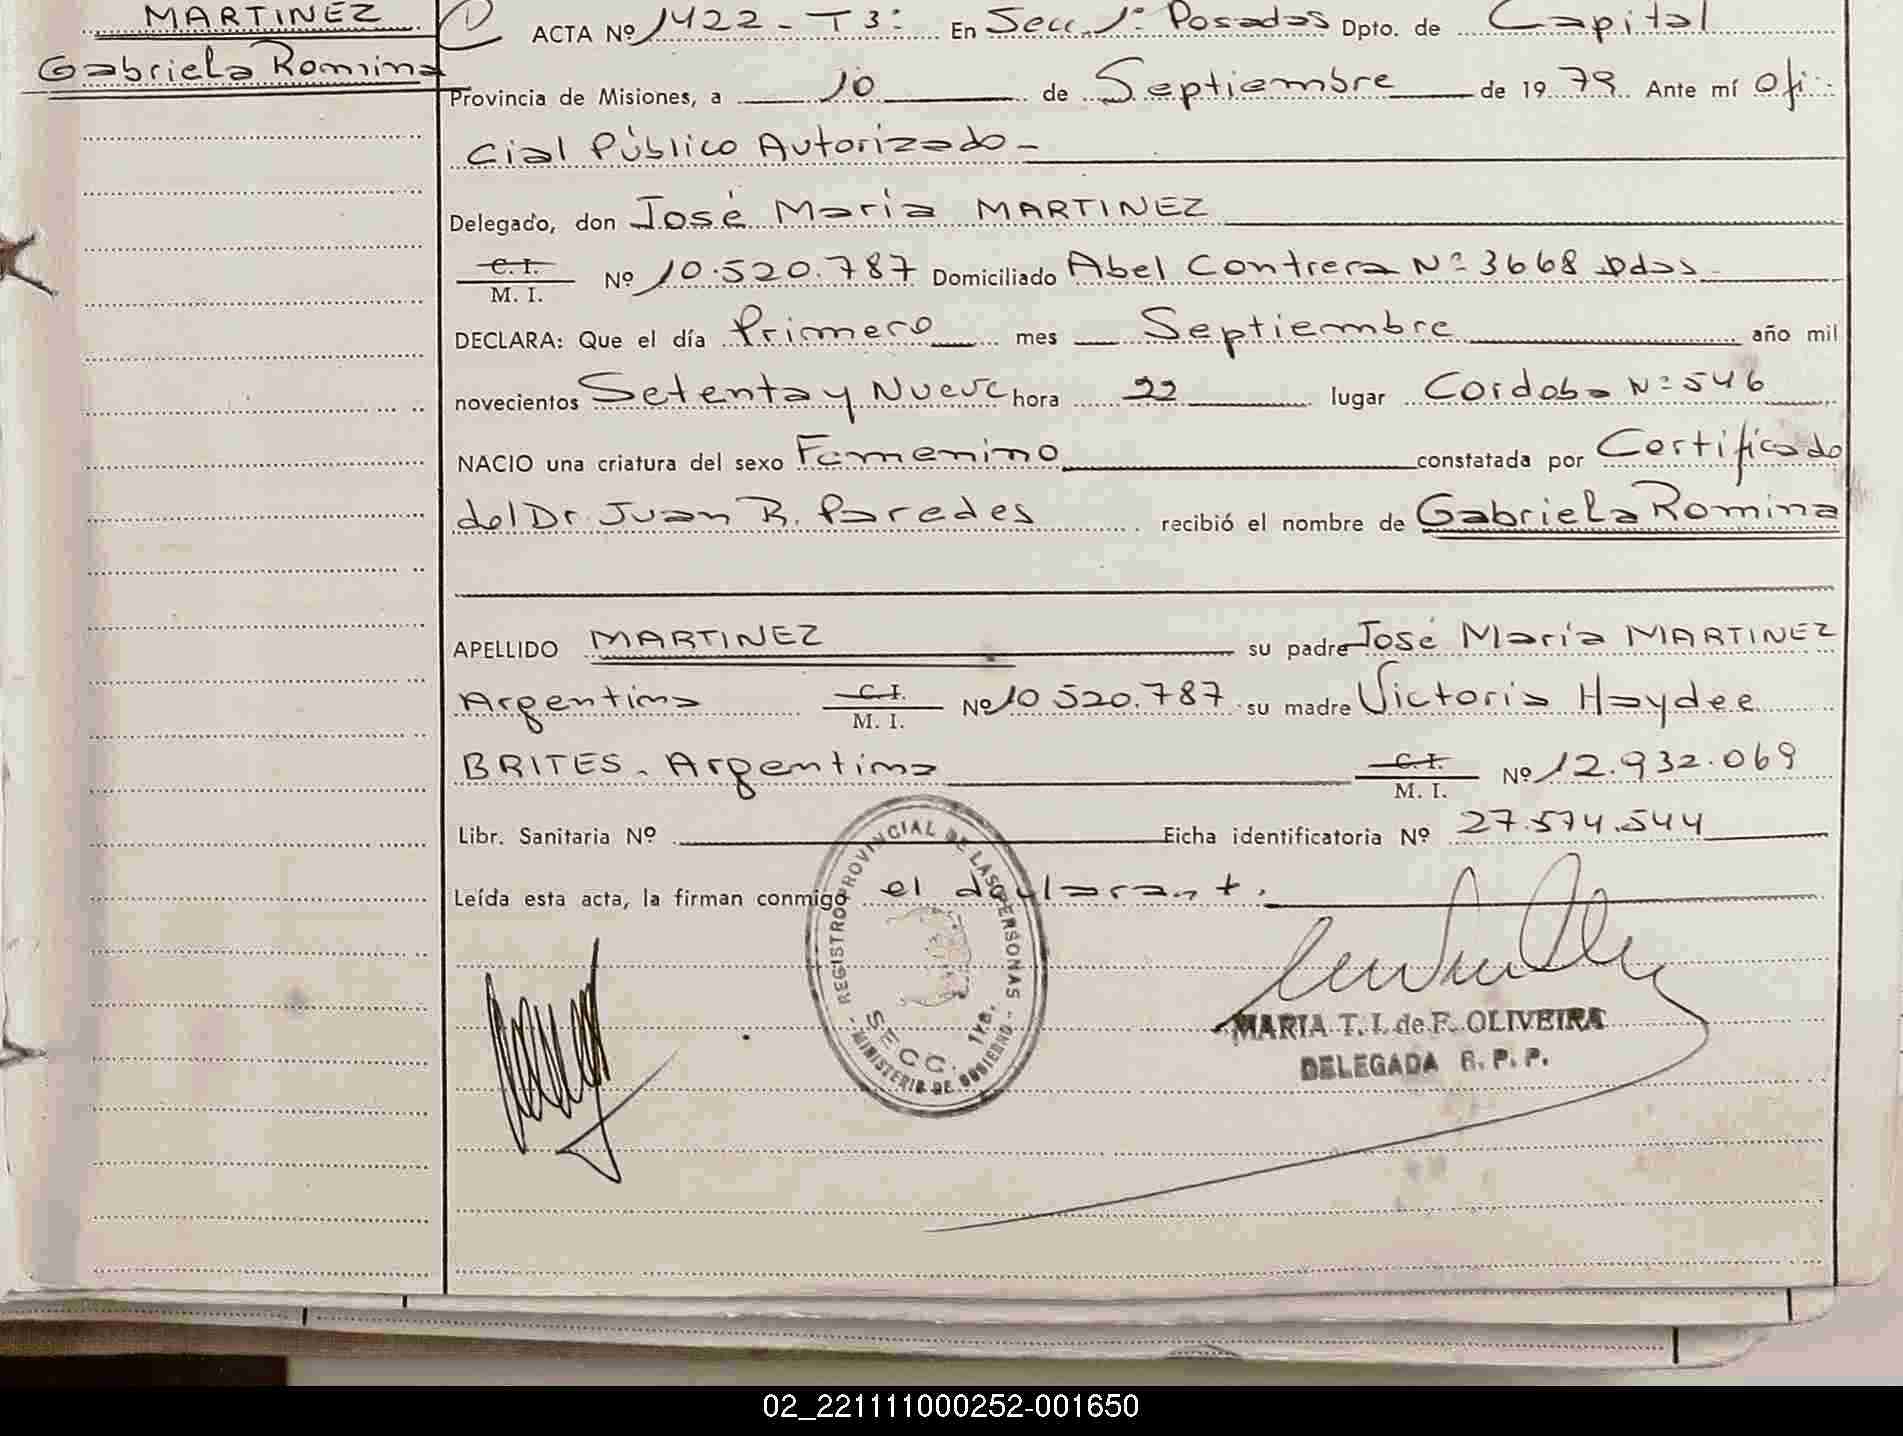 MARTINEZ
Gabriela Romina
ACTA Nº 1422 - T3: En Secc. 1º Posadas Dpto. de Capital
Provincia de Misiones, a 10 de Septiembre de 1979 Ante mí Ofi-
cial Público Autorizado -
Delegado, don José María MARTINEZ
C. I. M. I. Nº 10.520.787 Domiciliado Abel Contrera Nº 3668 Pdas
DECLARA: Que el día Primero mes Septiembre año mil
novecientos Setenta y Nueve hora 22 lugar Cordoba Nº 546
NACIO una criatura del sexo Femenino constatada por Certificado
del Dr. Juan R. Paredes recibió el nombre de Gabriela Romina
APELLIDO MARTINEZ su padre José María MARTINEZ
Argentina C. I. M. I. Nº 10.520.787 su madre Victoria Haydee
BRITES. Argentina C. I. M. I. Nº 12.932.069
Libr. Sanitaria Nº Ficha identificatoria Nº 27.574.544
Leída esta acta, la firman conmigo el declarant.
REGISTRO PROVINCIAL DE LAS PERSONAS
SECC. 1ra.
- MINISTERIO DE GOBIERNO -
MARIA T. I. de F. OLIVEIRA
DELEGADA R. P. P.
02_221111000252-001650